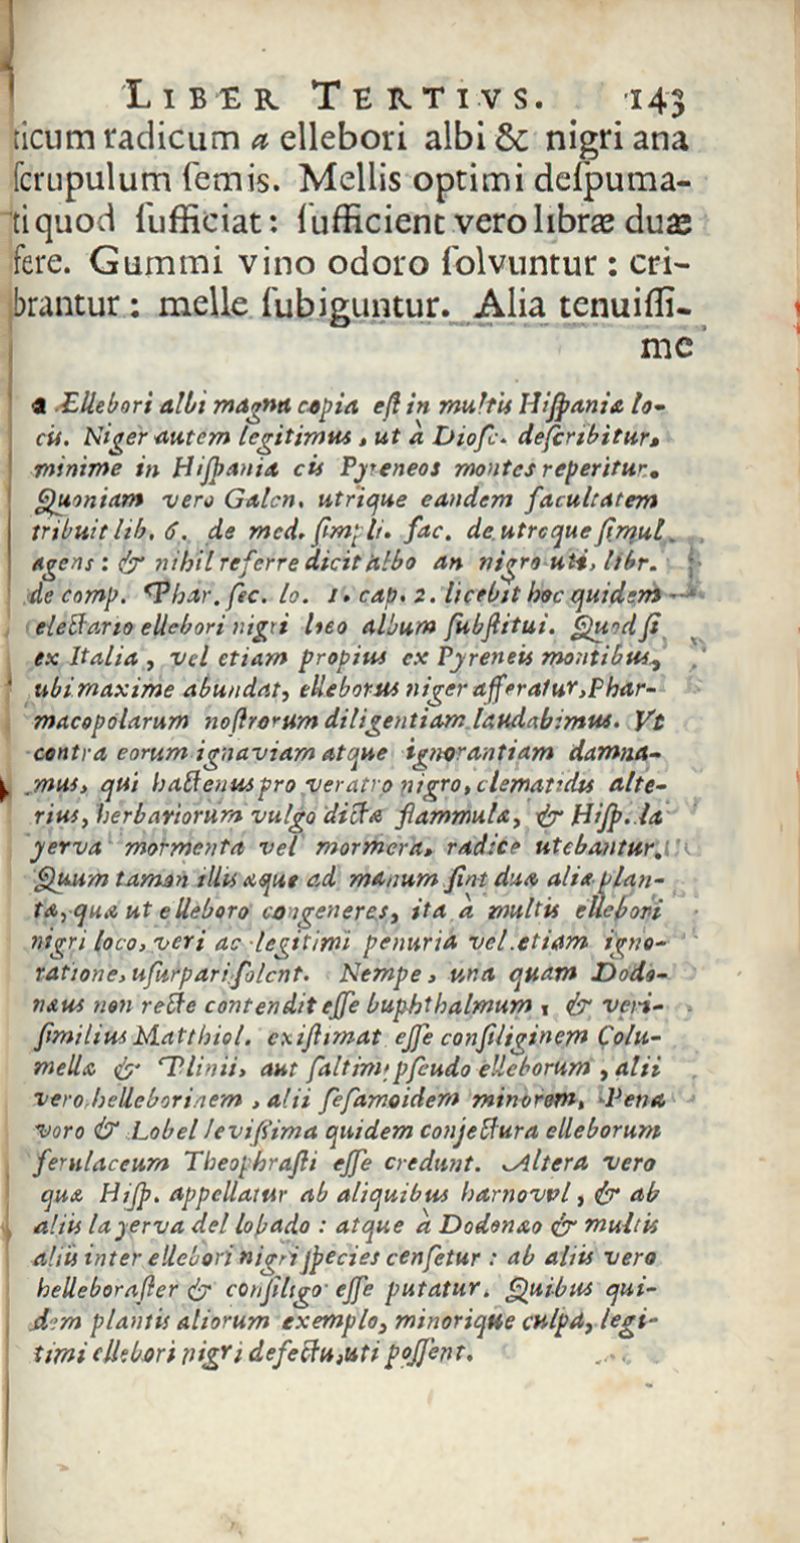 LIBER TERTIVS. 143
ticum radicum a ellebori albi & nigri ana
ſcrupulum ſemis. Mellis optimi deſpuma-
ti quod ſufficiat: ſufficient vero libræ duæ
fere. Gummi vino odoro ſolvuntur: cri-
brantur: melle ſubiguntur. Alia tenuiſſi-
me
a Ellebori albi magna copia eſt in multis Hiſpaniæ lo-
cis. Niger autem legitimus, ut à Dioſc. deſcribitur,
minime in Hiſpania cis Pyreneos montes reperitur.
Quoniam vero Galen. utrique eandem facultatem
tribuit lib. 6. de med. ſimpli. fac. de utroque ſimul
agens: & nihil referre dicit albo an nigro uti, libr.
de comp. Phar. ſec. lo. 1. cap. 2. licebit hoc quidem
electario ellebori nigri loco album ſubſtitui. Quod ſi
ex Italia, vel etiam propius ex Pyreneis montibus,
ubi maxime abundat, elleborus niger afferatur, Phar-
macopolarum noſtrorum diligentiam laudabimus. Vt
contra eorum ignaviam atque ignorantiam damna-
mus, qui hactenus pro veratro nigro, clematidis alte-
rius, herbariorum vulgo dictæ flammulæ, & Hiſp. la
yerva mormenta vel mormera, radice utebantur.
Quum tamen illis æque ad manum ſint duæ aliæ plan-
tæ, quæ ut elleboro congeneres, ita à multis ellebori
nigri loco, veri ac legitimi penuriâ vel etiam igno-
ratione, uſurpari ſolent. Nempe, una quam Dodo-
næus non recte contendit eſſe buphthalmum, & veri-
ſimilius Matthiol. exiſtimat eſſe conſiliginem Colu-
mellæ & Plinii, aut ſaltim pſeudo elleborum, alii
vero helleborinem, alii ſeſamoidem minorem, Pena
voro & Lobel leviſſima quidem conjectura elleborum
ferulaceum Theophraſti eſſe credunt. Altera vero
quæ Hiſp. appellatur ab aliquibus harnovvl, & ab
aliis la yerva del lobado: atque à Dodonæo & multis
aliis inter ellebori nigri ſpecies cenſetur: ab aliis vero
helleboraſter & conſiligo eſſe putatur. Quibus qui-
dem plantis aliorum exemplo, minorique culpâ, legi-
timi ellebori nigri defectu, uti poſſent.